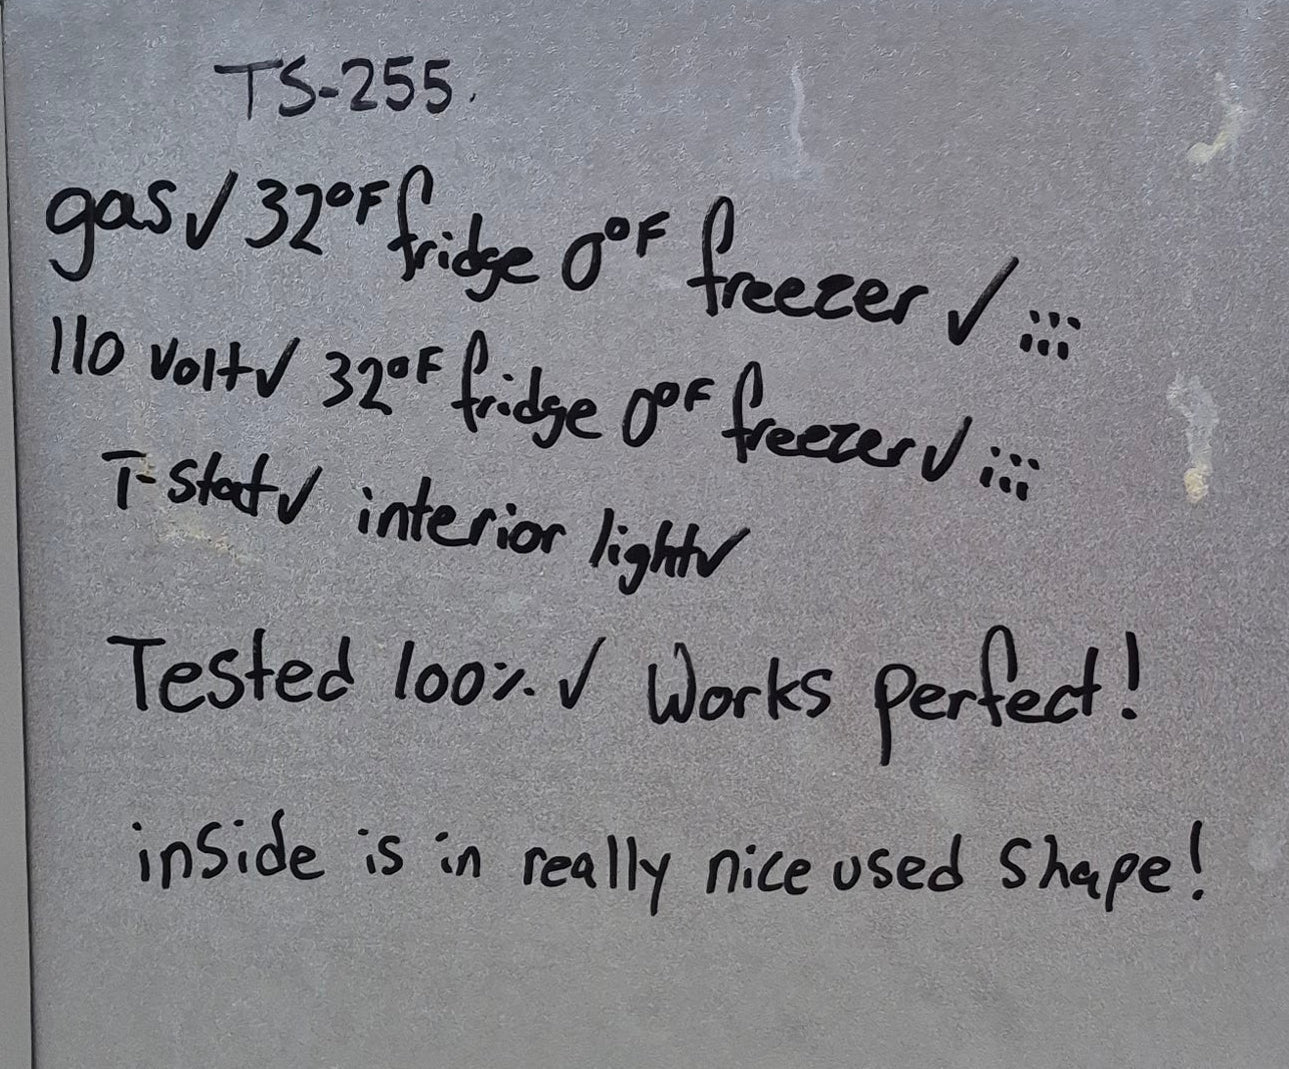 TS-255.
gas✓ 32°F fridge 0°F freezer ✓ !!!
110 volt✓ 32°F fridge 0°F freezer✓ !!!
T-stat✓ interior light✓
Tested 100% ✓ Works perfect!
inside is in really nice used shape!